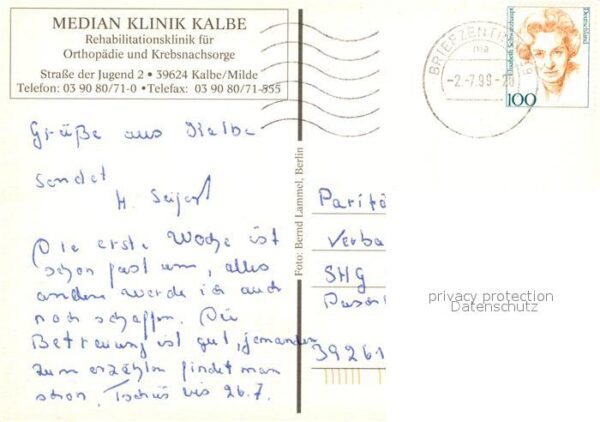 MEDIAN KLINIK KALBE
Rehabilitationsklinik für
Orthopädie und Krebsnachsorge
Straße der Jugend 2 • 39624 Kalbe/Milde
Telefon: 03 90 80/71-0 • Telefax: 03 90 80/71-555
Grüße aus Kalbe
sendet
H. Seifert
Die erste Woche ist
schon fast um, alles
andere werde ich auch
noch schaffen. Die
Betreuung ist gut, jemanden
zum erzählen findet man
schon. Tschüs bis 26.7.
Foto: Bernd Lammel, Berlin
BRIEFZENTRUM 39
ma
-2.-7.99-20
Elisabeth Schwarzhaupt
Deutschland
100
Paritä
Verba
SHG
39261
privacy protection
Datenschutz